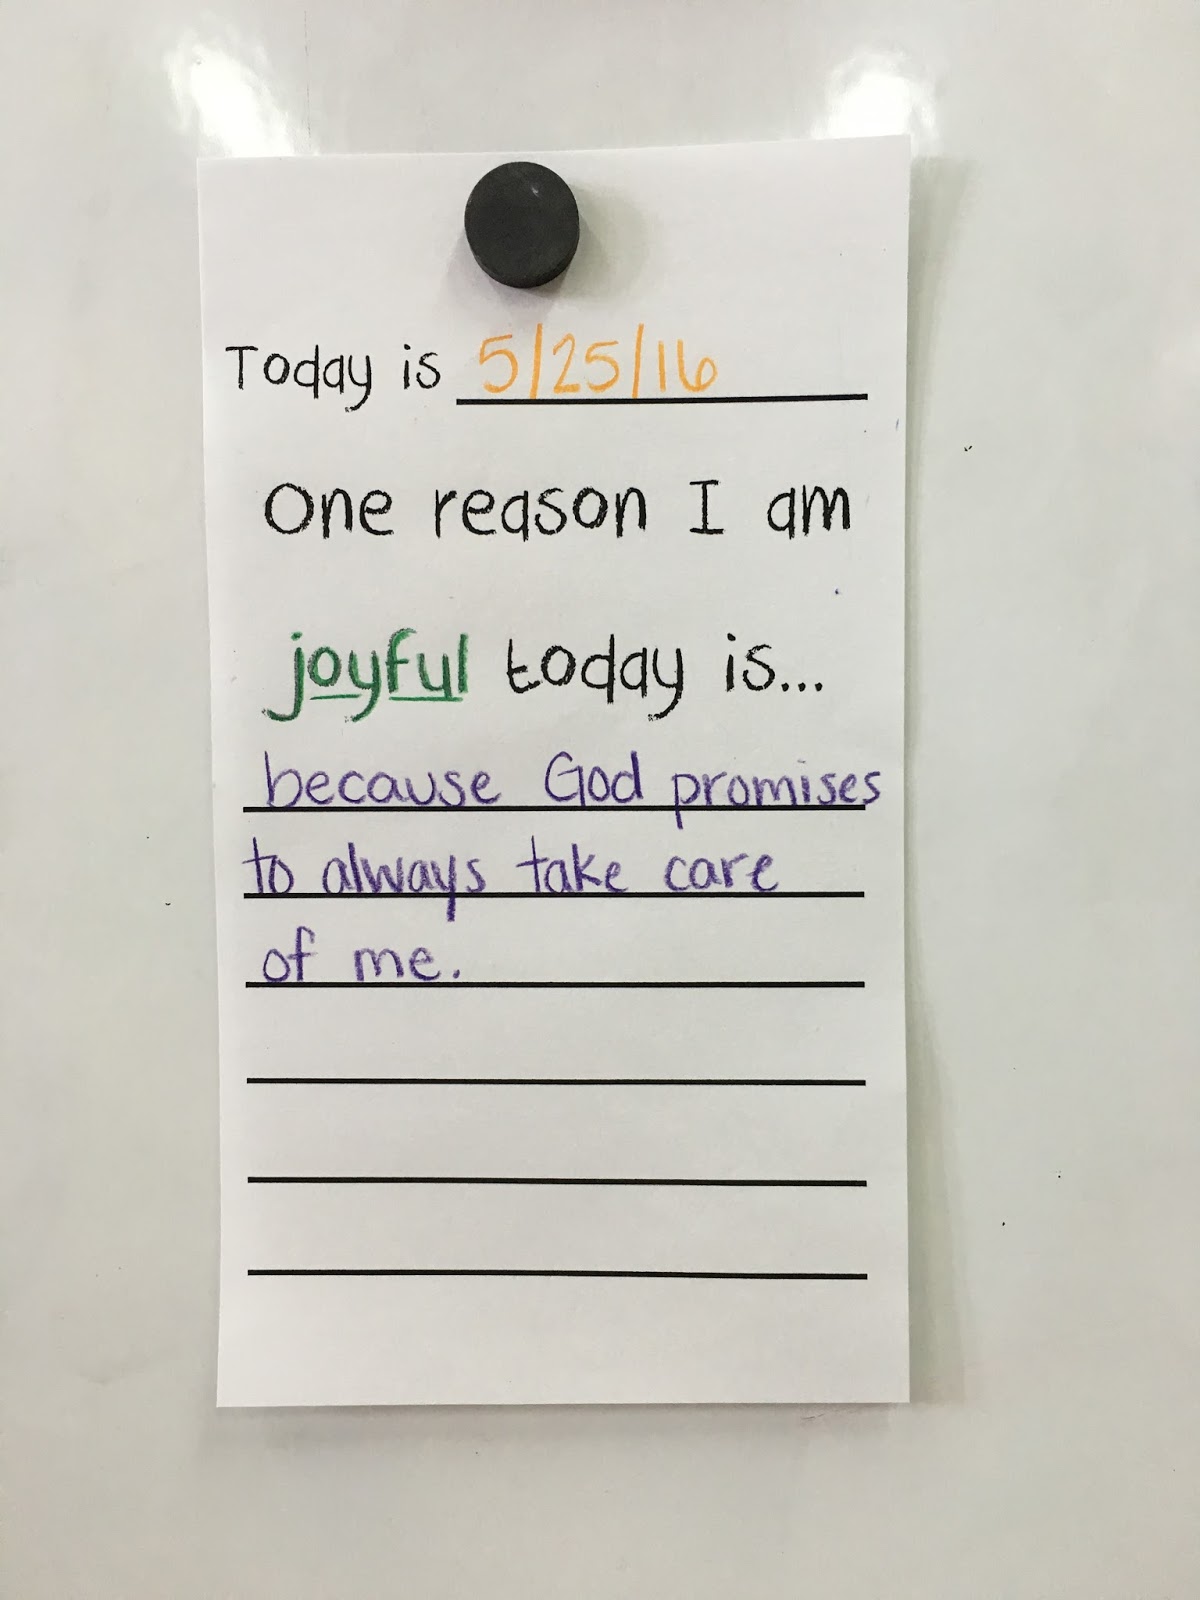 Today is 5/25/16
One reason I am
joyful today is...
because God promises
to always take care
of me.